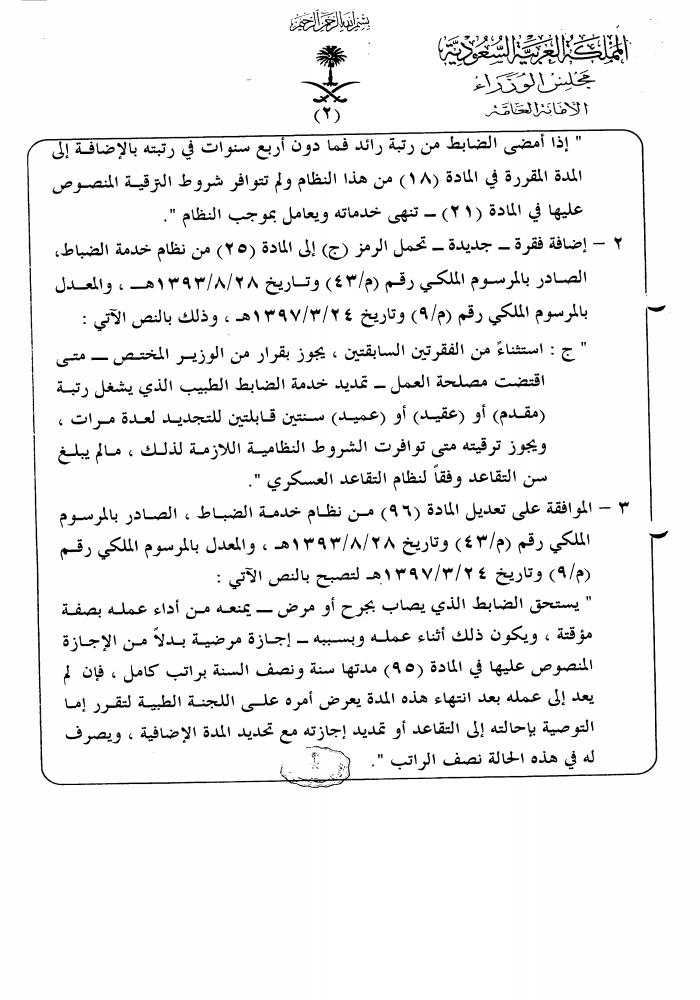 بسم الله الرحمن الرحيم
المملكة العربية السعودية
مجلس الوزراء
الأمانة العامة
(٢)
" إذا أمضى الضابط من رتبة رائد فما دون أربع سنوات في رتبته بالإضافة إلى
المدة المقررة في المادة (١٨) من هذا النظام ولم تتوافر شروط الترقية المنصوص
عليها في المادة (٢١) ــ تنهى خدماته ويعامل بموجب النظام ".
٢ - إضافة فقرة ــ جديدة ــ تحمل الرمز (ج) إلى المادة (٢٥) من نظام خدمة الضباط،
الصادر بالمرسوم الملكي رقم (م/٤٣) وتاريخ ١٣٩٣/٨/٢٨هـ ، والمعدل
بالمرسوم الملكي رقم (م/٩) وتاريخ ١٣٩٧/٣/٢٤هـ ، وذلك بالنص الآتي :
" ج : استثناءً من الفقرتين السابقتين ، يجوز بقرار من الوزير المختص ــ متى
اقتضت مصلحة العمل ــ تمديد خدمة الضابط الطبيب الذي يشغل رتبة
(مقدم) أو (عقيد) أو (عميد) سنتين قابلتين للتجديد لعدة مرات ،
ويجوز ترقيته متى توافرت الشروط النظامية اللازمة لذلك ، مالم يبلغ
سن التقاعد وفقاً لنظام التقاعد العسكري ".
٣ - الموافقة على تعديل المادة (٩٦) من نظام خدمة الضباط ، الصادر بالمرسوم
الملكي رقم (م/٤٣) وتاريخ ١٣٩٣/٨/٢٨هـ ، والمعدل بالمرسوم الملكي رقم
(م/٩) وتاريخ ١٣٩٧/٣/٢٤هـ لتصبح بالنص الآتي :
" يستحق الضابط الذي يصاب بجرح أو مرض ــ يمنعه من أداء عمله بصفة
مؤقتة ، ويكون ذلك أثناء عمله وبسببه ــ إجازة مرضية بدلاً من الإجازة
المنصوص عليها في المادة (٩٥) مدتها سنة ونصف السنة براتب كامل ، فإن لم
يعد إلى عمله بعد انتهاء هذه المدة يعرض أمره على اللجنة الطبية لتقرر إما
التوصية بإحالته إلى التقاعد أو تمديد إجازته مع تحديد المدة الإضافية ، ويصرف
له في هذه الحالة نصف الراتب ".